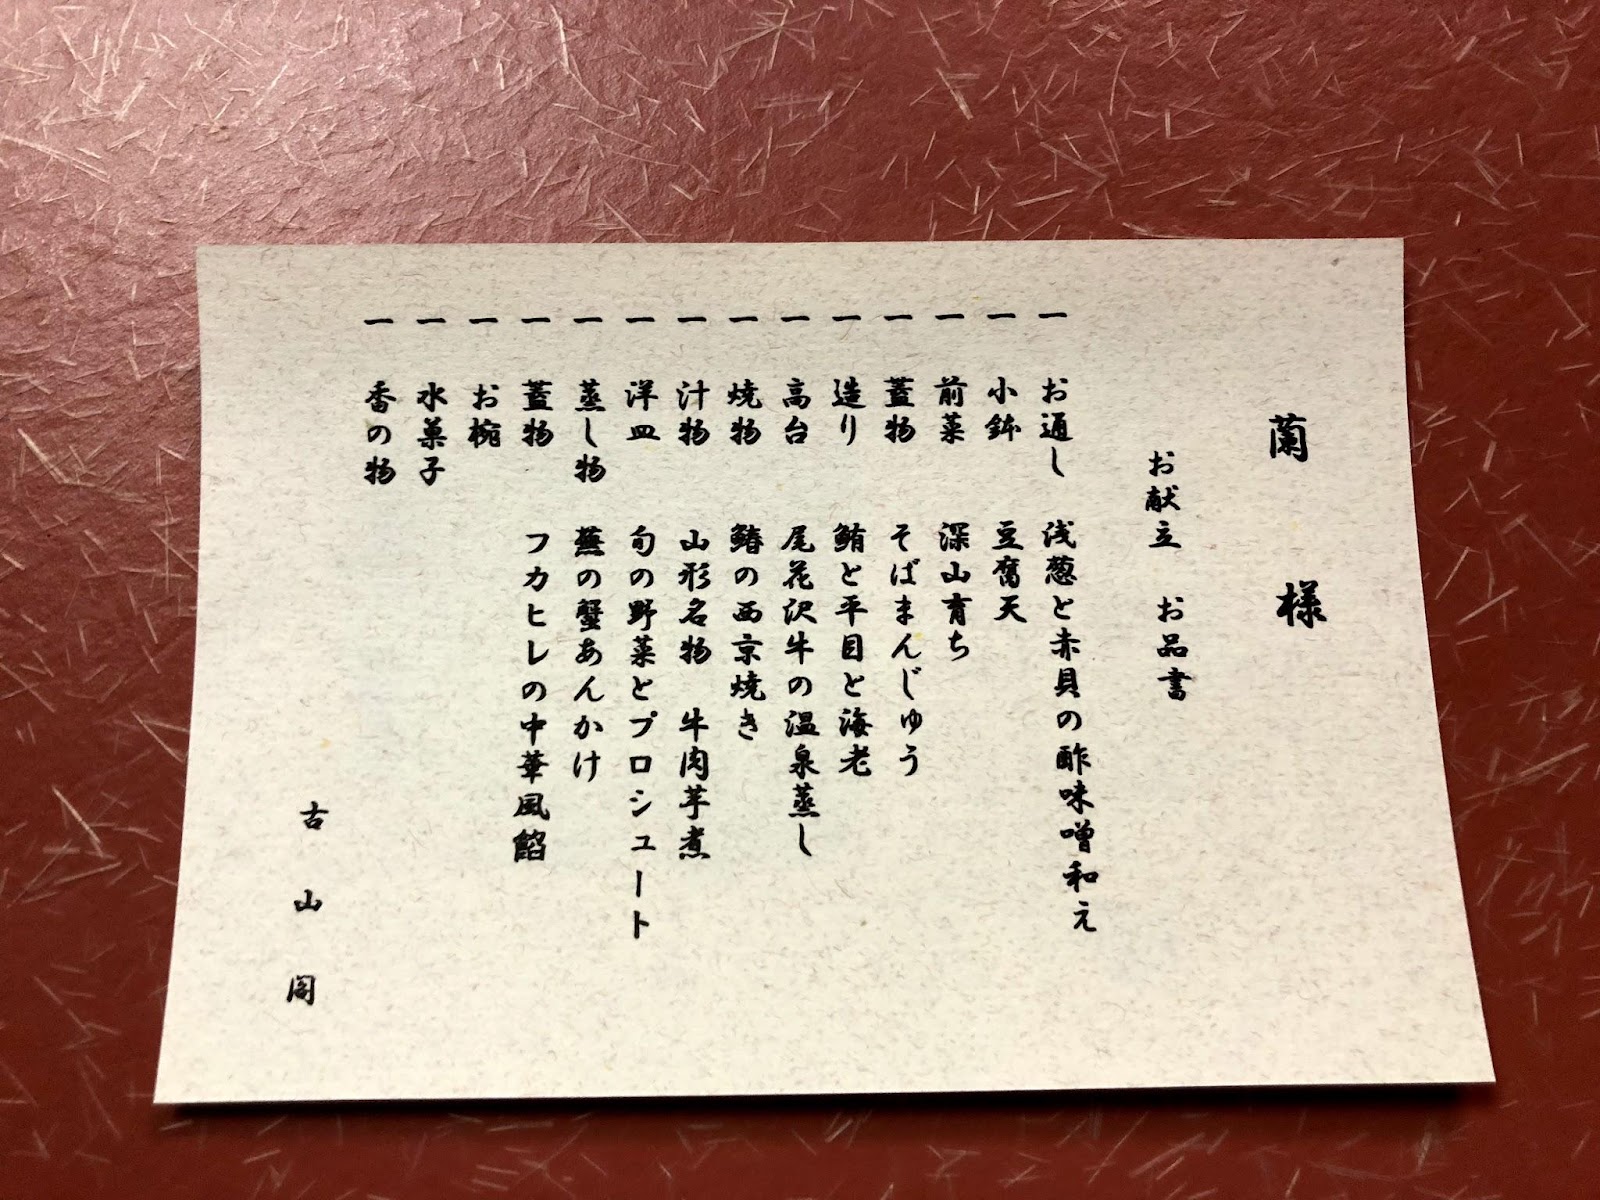 蘭 様
お献立 お品書
一 お通し 浅葱と赤貝の酢味噌和え
一 小鉢 豆腐天
一 前菜 深山育ち
一 蓋物 そばまんじゅう
一 造り 鮪と平目と海老
一 高台 尾花沢牛の温泉蒸し
一 焼物 鰆の西京焼き
一 汁物 山形名物 牛肉芋煮
一 洋皿 旬の野菜とプロシュート
一 蒸し物 蕪の蟹あんかけ
一 蓋物 フカヒレの中華風餡
一 お椀
一 水菓子
一 香の物
古山閣